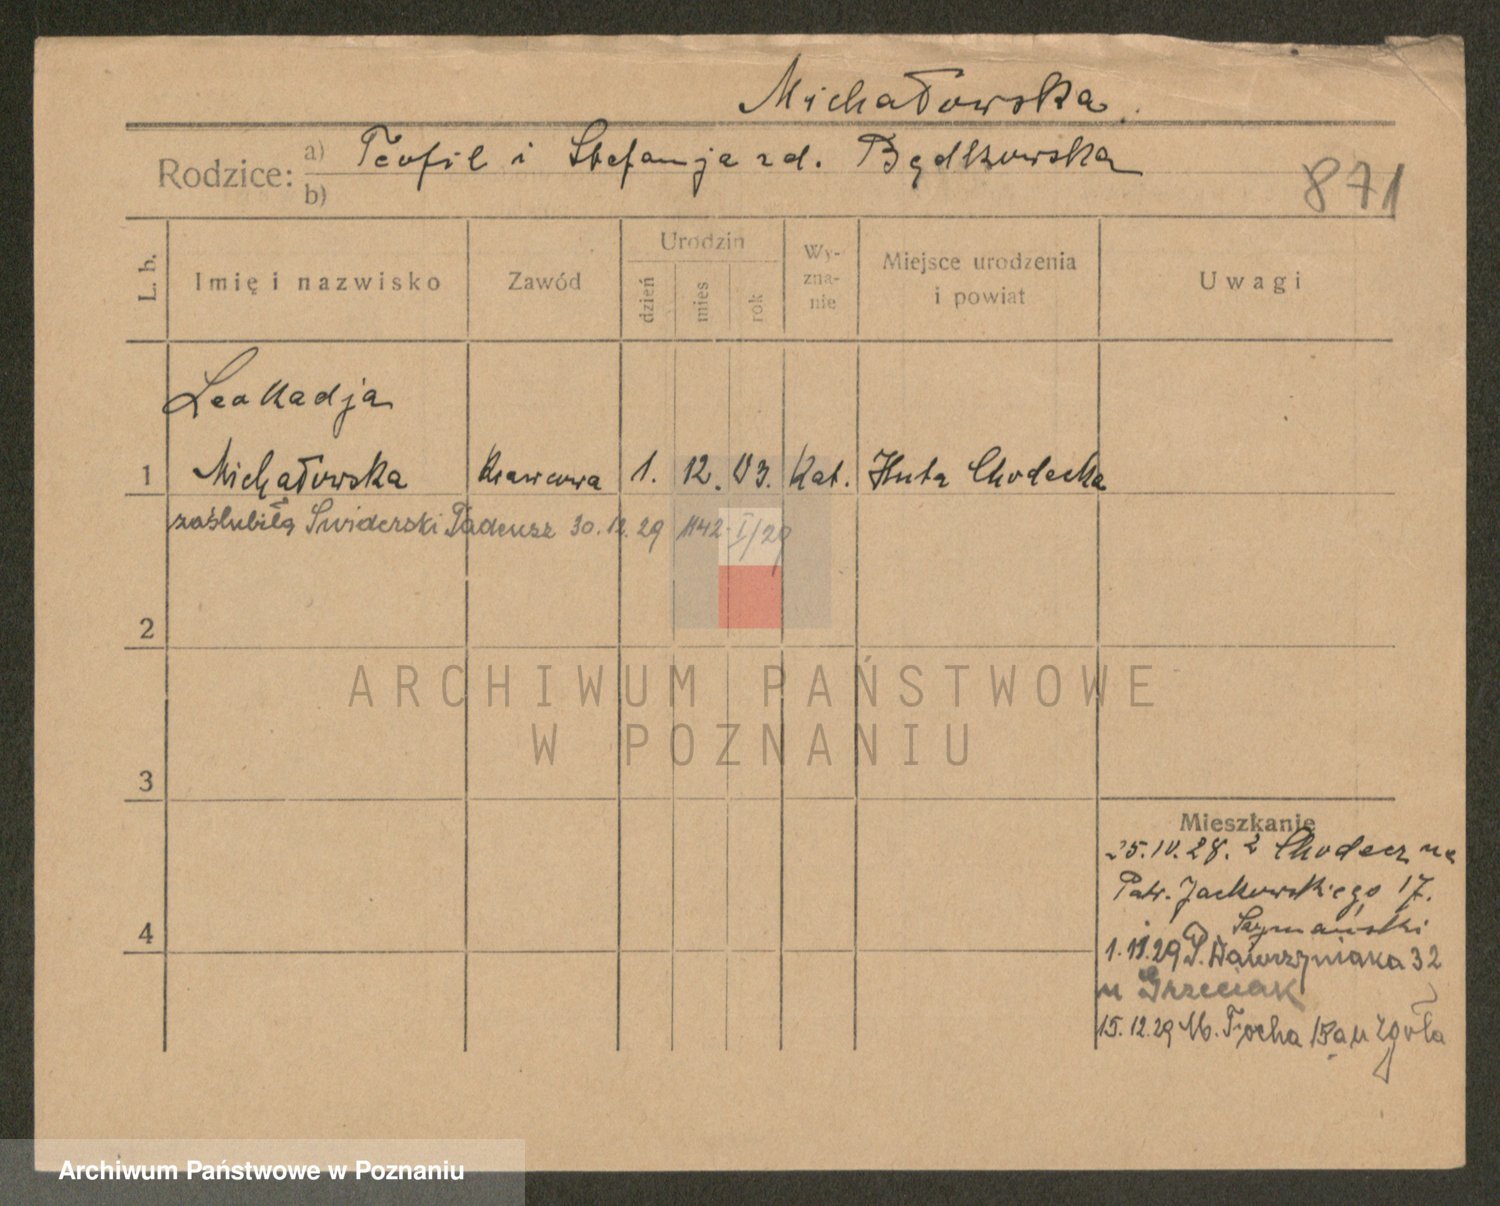 Michałowska.
Rodzice: a) Teofil i Stefanja zd. Będkowska
b)
871
L. b.
Imię i nazwisko
Zawód
Urodzin
dzień
mies
rok
Wy-
zna-
nie
Miejsce urodzenia
i powiat
Uwagi
Leokadja
1 Michałowska Krawcowa 1. 12. 03. Kat. Huta Chodecka
zaślubiła Świderski Tadeusz 30.12.29 1142 I/29
2
ARCHIWUM PAŃSTWOWE
W POZNANIU
3
Mieszkanie
25.IV.28. z Chodecz na
Patr. Jackowskiego 17.
Szymański
4
1.11.29 P. Wawrzyniaka 32
u Grzeciak
15.12.29 M. Focha u Zgoła
Archiwum Państwowe w Poznaniu